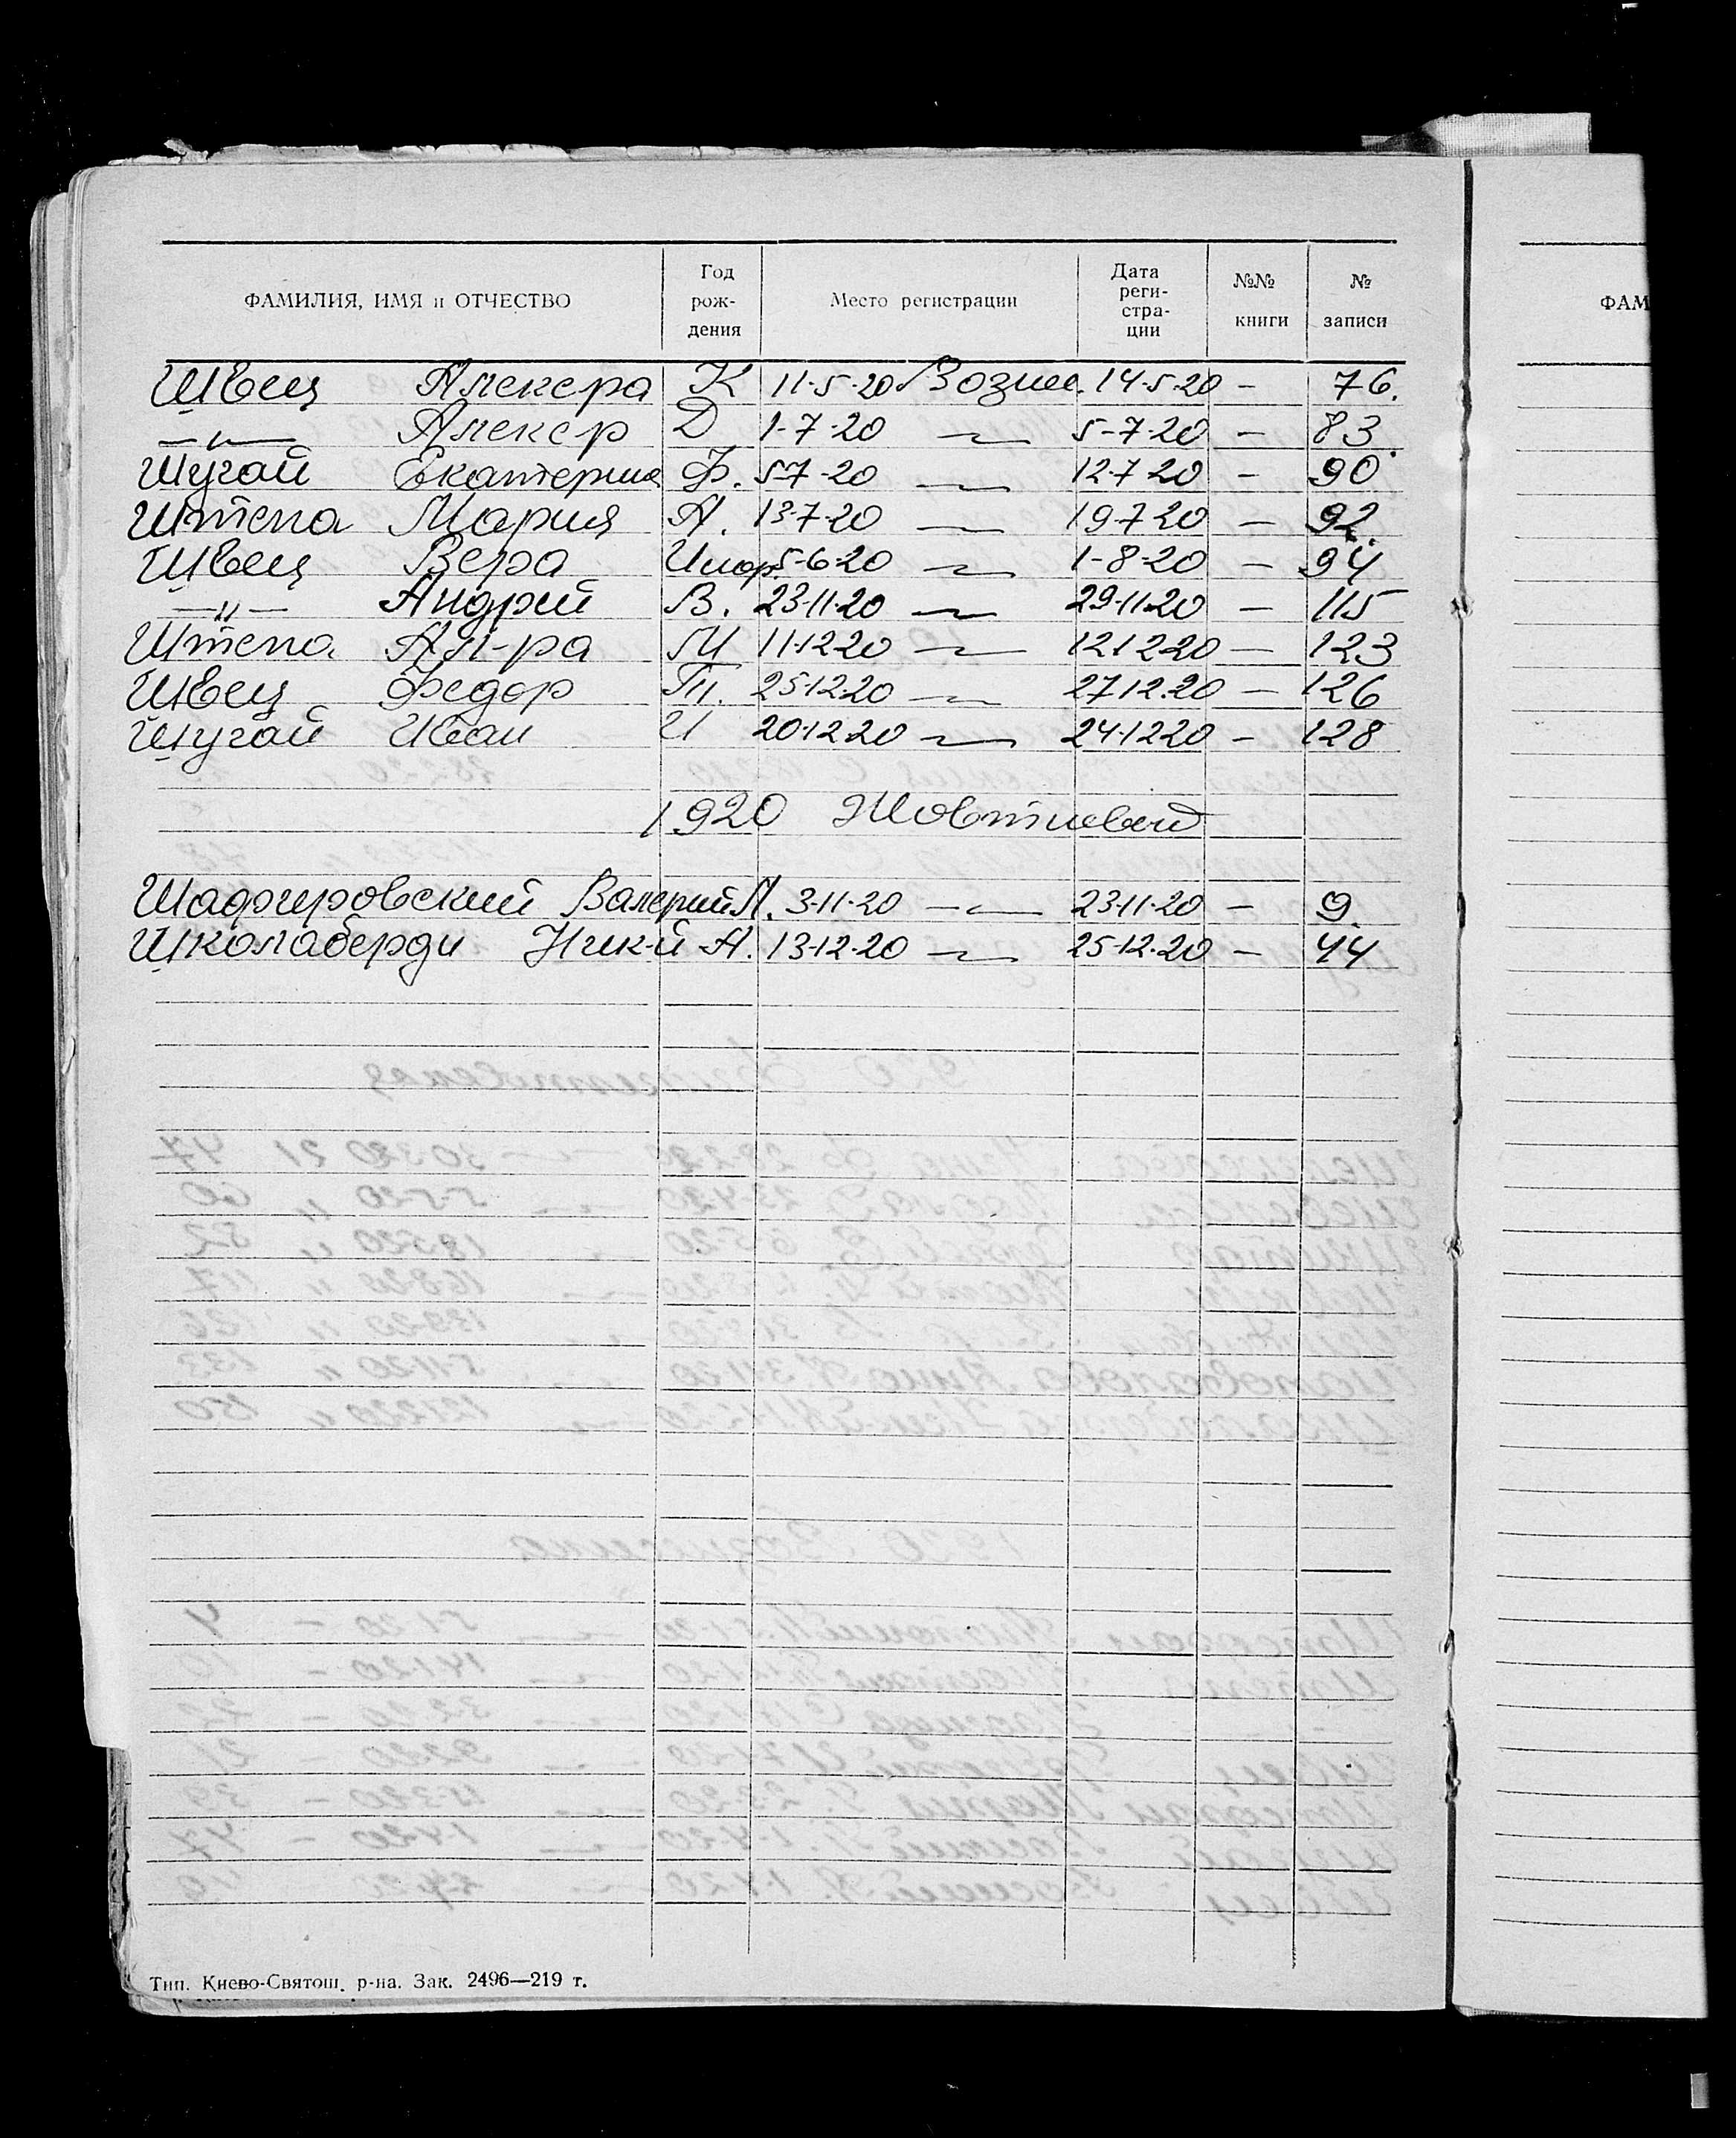 ФАМИЛИЯ, ИМЯ и ОТЧЕСТВО Год рож- дения Место регистрации Дата реги- стра- ции №№ книги № записи
ФАМ
Швец Алексера К 11-5-20 Возне. 14-5-20 - 76.
—"— Алексер Д 1-7-20 —"— 5-7-20 - 83
Шугай Екатерина Ф. 5-7-20 —"— 12-7-20 - 90
Штепа Мария А. 13-7-20 —"— 19-7-20 - 92
Швец Вера 5-6-20 —"— 1-8-20 - 94
—"— Андрей В. 23-11-20 —"— 29-11-20 - 115
Штепа Ал-ра М 11-12-20 —"— 12-12-20 - 123
Швец Федор П. 25-12-20 —"— 27-12-20 - 126
Шугай Иван И 20-12-20 —"— 24-12-20 - 128
1920 Жовтневой
Валерий А. 3-11-20 —"— 23-11-20 - 9
Школаберди Ник-й А. 13-12-20 —"— 25-12-20 - 44
Тип. Киево-Святош. р-на. Зак. 2496—219 т.